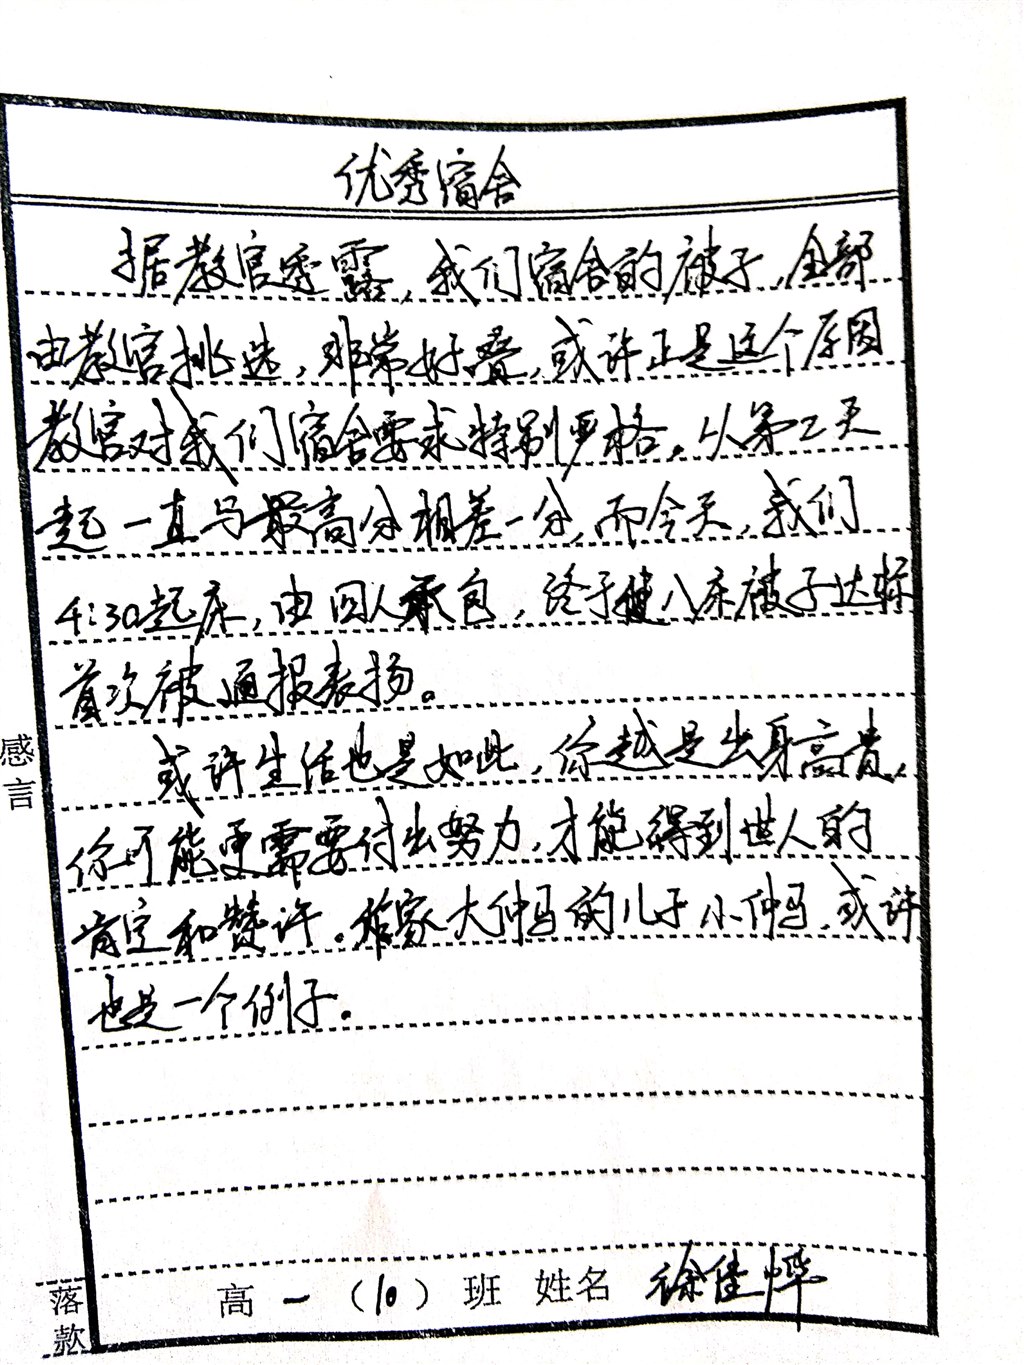 优秀宿舍
据教官透露，我们宿舍的被子，全部
由教官挑选，非常好叠，或许正是这个原因
教官对我们宿舍要求特别严格。从第二天
起一直与最高分相差一分，而今天，我们
4:30起床，由四人承包，终于使八床被子达标
首次被通报表扬。
或许生活也是如此，你越是出身高贵，
你可能更需要付出努力，才能得到世人的
肯定和赞许。作家大仲马的儿子小仲马，或许
也是一个例子。
感言
落款
高一（10）班 姓名 徐佳烨